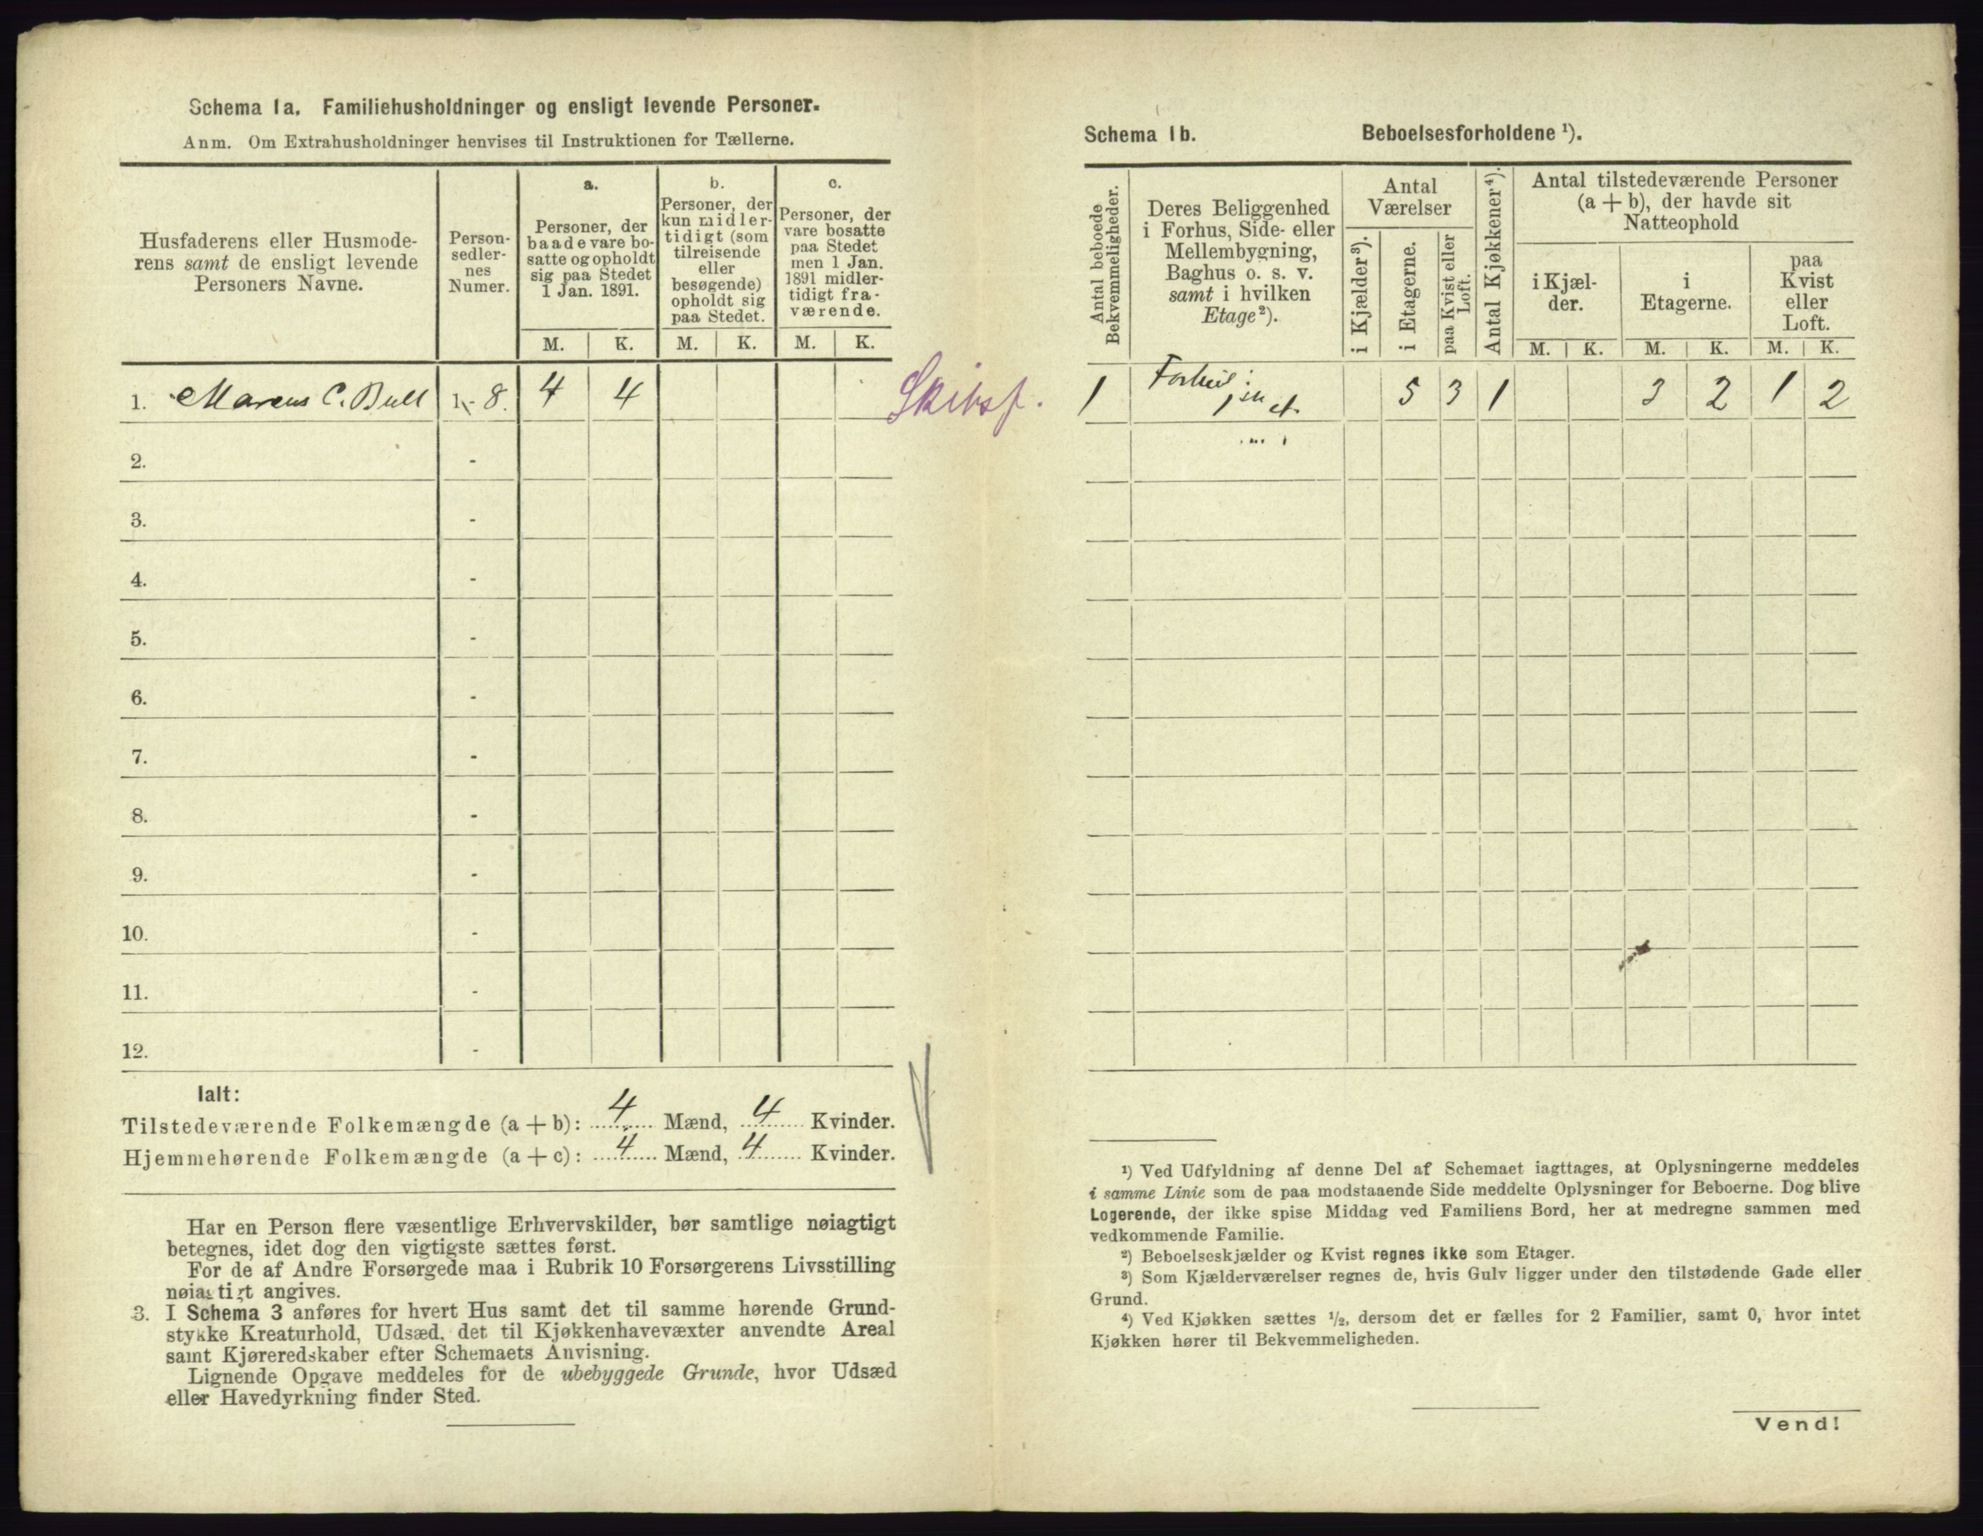 Schema 1a. Familiehusholdninger og ensligt levende Personer.
Anm. Om Extrahusholdninger henvises til Instruktionen for Tællerne.
Husfaderens eller Husmode-
rens samt de ensligt levende
Personers Navne.
Person-
sedler-
nes
Numer.
a.
Personer, der
baade vare bo-
satte og opholdt
sig paa Stedet
1 Jan. 1891.
b.
Personer, der
kun midler-
tidigt (som
tilreisende
eller
besøgende)
opholdt sig
paa Stedet.
c.
Personer, der
vare bosatte
paa Stedet
men 1 Jan.
1891 midler-
tidigt fra-
værende.
M. K. M. K. M. K.
1. Marcus C. Bull 1 - 8. 4 4
Skibsf.
2. -
3. -
4. -
5. -
6. -
7. -
8. -
9. -
10. -
11. -
12. -
Ialt:
Tilstedeværende Folkemængde (a + b): 4 Mænd, 4 Kvinder.
Hjemmehørende Folkemængde (a + c): 4 Mænd, 4 Kvinder.
Har en Person flere væsentlige Erhvervskilder, bør samtlige nøiagtigt
betegnes, idet dog den vigtigste sættes først.
For de af Andre Forsørgede maa i Rubrik 10 Forsørgerens Livsstilling
nøiagtigt angives.
3. I Schema 3 anføres for hvert Hus samt det til samme hørende Grund-
stykke Kreaturhold, Udsæd, det til Kjøkkenhavevæxter anvendte Areal
samt Kjøreredskaber efter Schemaets Anvisning.
Lignende Opgave meddeles for de ubebyggede Grunde, hvor Udsæd
eller Havedyrkning finder Sted.
Schema 1b. Beboelsesforholdene ¹).
Antal beboede
Bekvemmeligheder.
Deres Beliggenhed
i Forhus, Side- eller
Mellembygning,
Baghus o. s. v.
samt i hvilken
Etage²).
Antal
Værelser
i Kjælder³).
i Etagerne.
paa Kvist eller
Loft.
Antal Kjøkkener⁴).
Antal tilstedeværende Personer
(a + b), der havde sit
Natteophold
i Kjæl-
der.
i
Etagerne.
paa
Kvist
eller
Loft.
M. K. M. K. M. K.
1 5 3 1 3 2 1 2
¹) Ved Udfyldning af denne Del af Schemaet iagttages, at Oplysningerne meddeles
i samme Linie som de paa modstaaende Side meddelte Oplysninger for Beboerne. Dog blive
Logerende, der ikke spise Middag ved Familiens Bord, her at medregne sammen med
vedkommende Familie.
²) Beboelseskjælder og Kvist regnes ikke som Etager.
³) Som Kjælderværelser regnes de, hvis Gulv ligger under den tilstødende Gade eller
Grund.
⁴) Ved Kjøkken sættes ½, dersom det er fælles for 2 Familier, samt 0, hvor intet
Kjøkken hører til Bekvemmeligheden.
Vend!